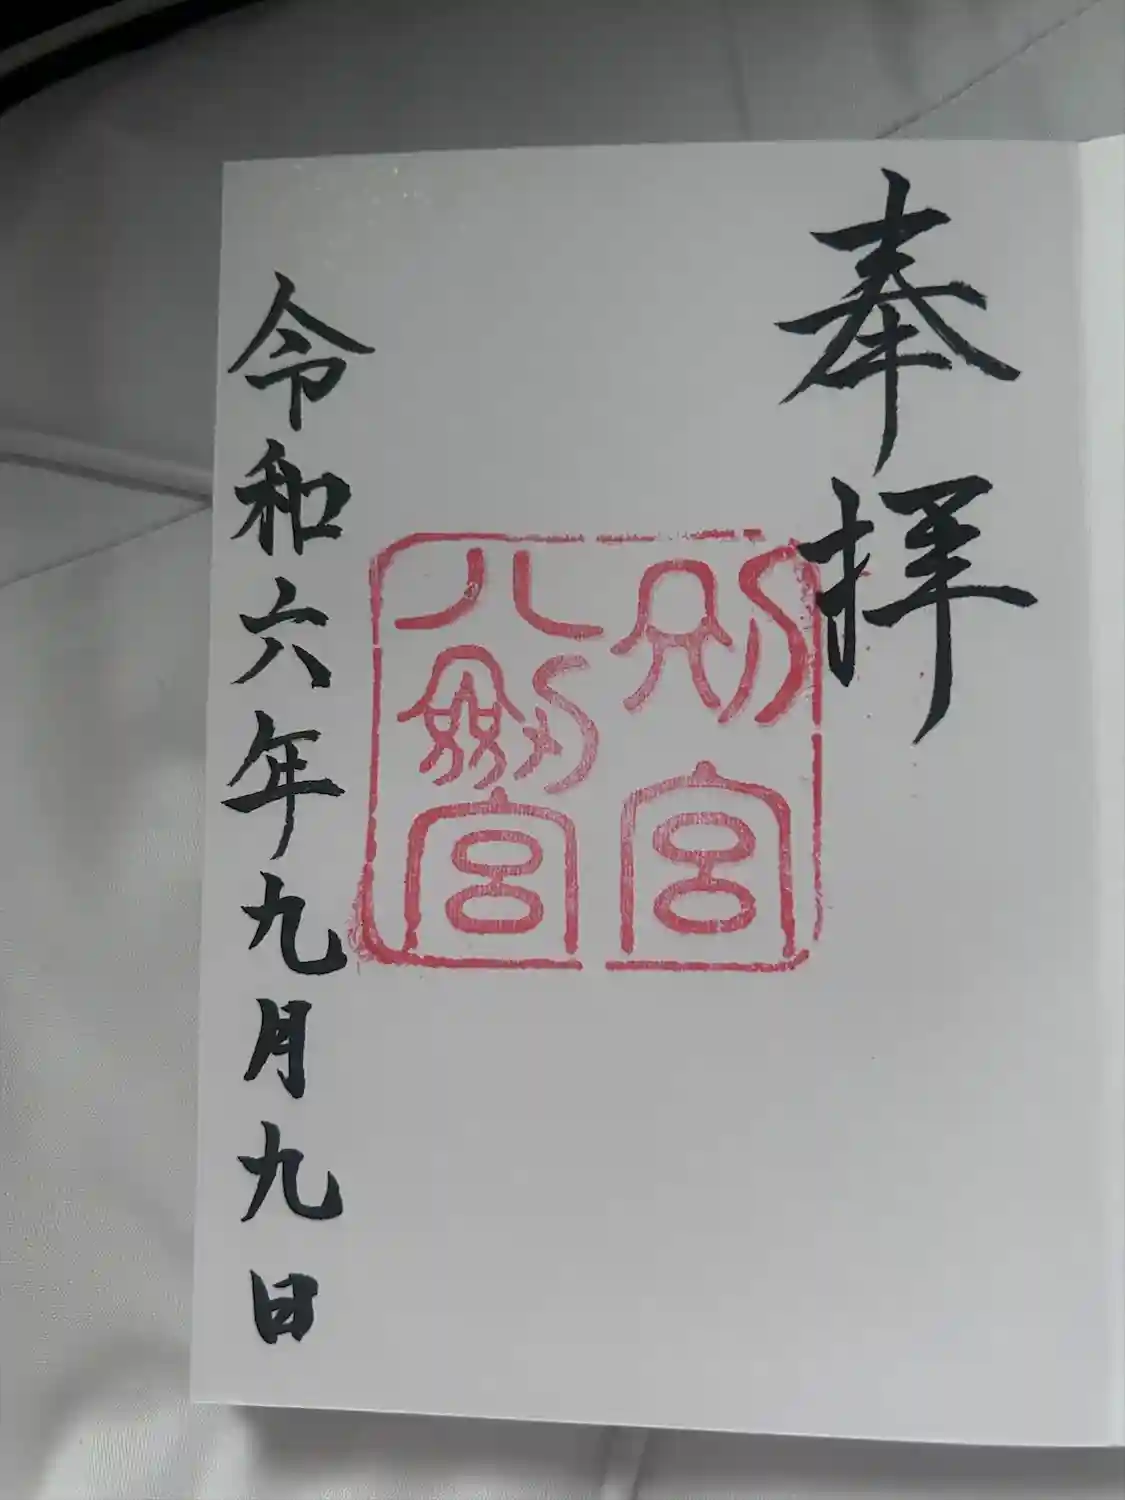 奉拝
別宮
八劔宮
令和六年九月九日